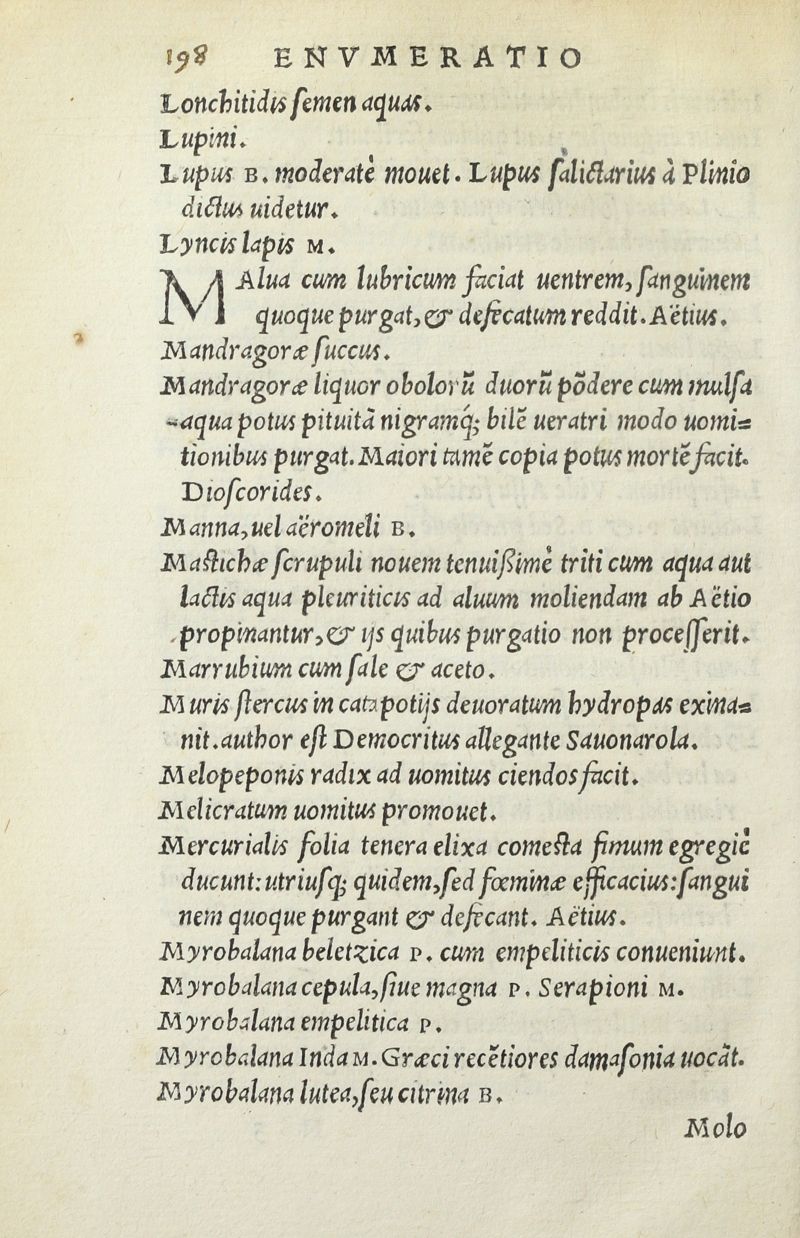 198 ENVMERATIO
Lonchitidis ſemen aquas.
Lupini.
Lupus B. moderatè mouet. Lupus ſalictarius à Plinio
dictus uidetur.
Lyncis lapis M.
MAlua cum lubricum faciat uentrem, ſanguinem
quoque purgat, & defęcatum reddit. Aëtius.
Mandragoræ ſuccus.
Mandragoræ liquor obolorũ duorũ põdere cum mulſa
aqua potus pituitã nigramq́; bilẽ ueratri modo uomi=
tionibus purgat. Maiori tamẽ copia potus mortẽ facit.
Dioſcorides.
Manna, uel aëromeli B.
Maſtichæ ſcrupuli nouem tenuißimè triti cum aqua aut
lactis aqua pleuriticis ad aluum moliendam ab Aëtio
propinantur, & ijs quibus purgatio non proceſſerit.
Marrubium cum ſale & aceto.
Muris ſtercus in catapotijs deuoratum hydropas exina=
nit. author eſt Democritus allegante Sauonarola.
Melopeponis radix ad uomitus ciendos facit.
Melicratum uomitus promouet.
Mercurialis folia tenera elixa comeſta fimum egregiè
ducunt: utriuſq; quidem, ſed fœminæ efficacius: ſangui
nem quoque purgant & defęcant. Aëtius.
Myrobalana beletzica P. cum empeliticis conueniunt.
Myrobalana cepula, ſiue magna P. Serapioni M.
Myrobalana empelitica P.
Myrobalana Inda M. Græci recẽtiores damaſonia uocãt.
Myrobalana lutea, ſeu citrina B.
Molo